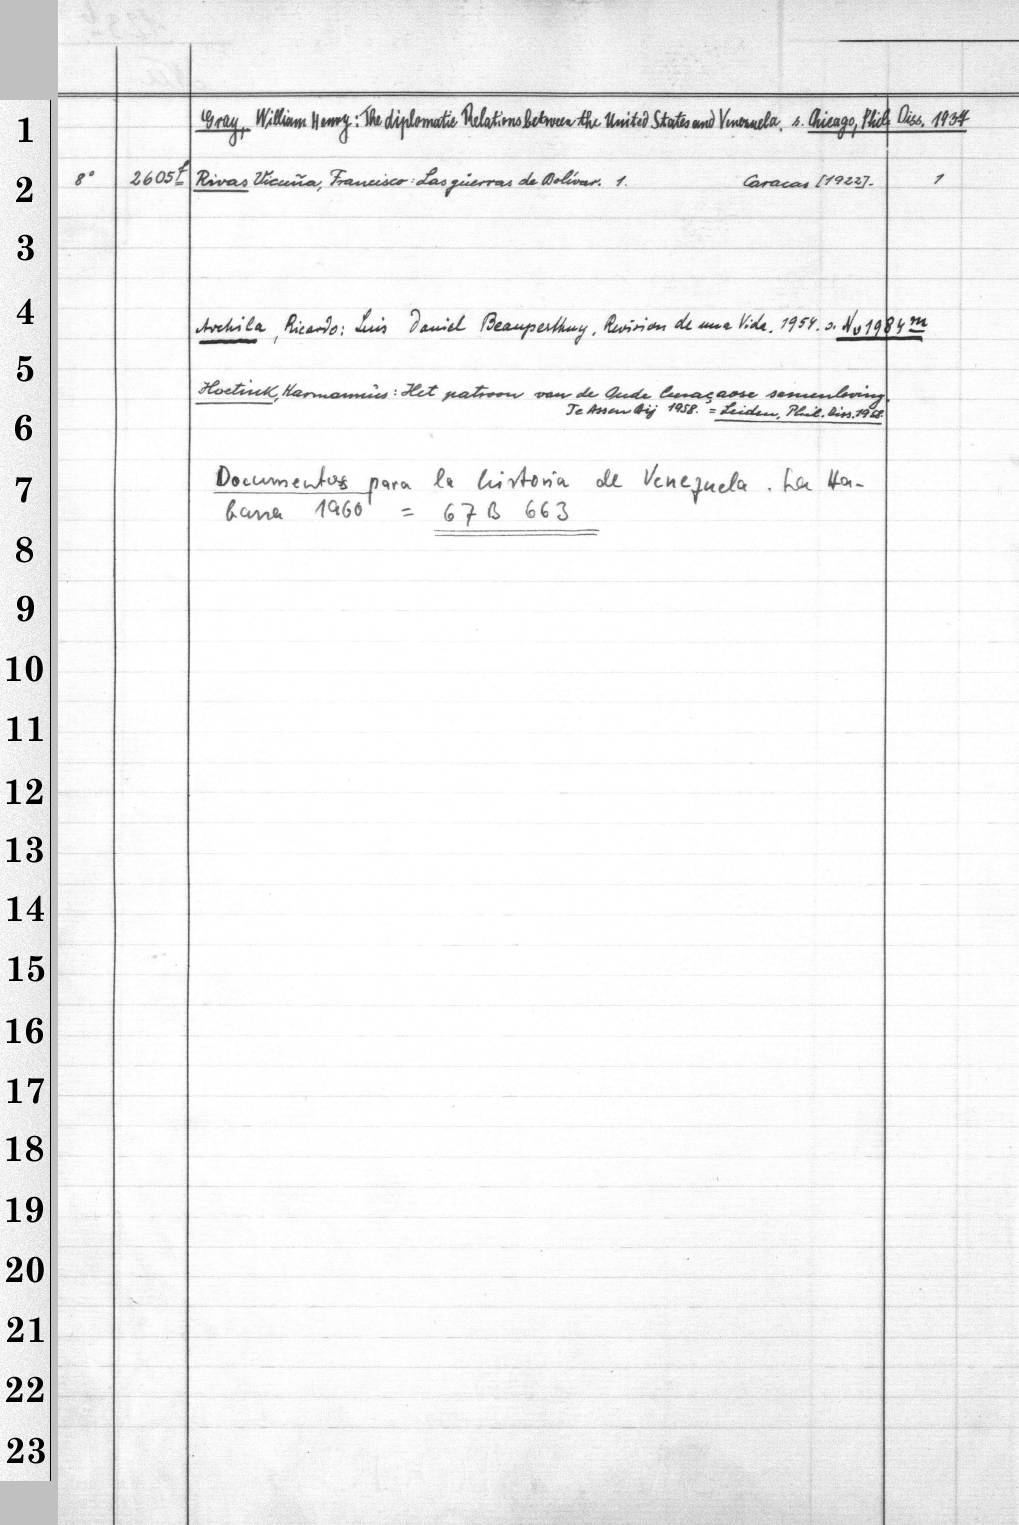 1 Gray, William Henry: The diplomatic Relations between the United States and Venezuela. s. Chicago, Phil. Diss. 1934
2 8° 2605f Rivas Vicuña, Francisco: Las guerras de Bolívar. 1. Caracas [1922]. 1
3
4 Archila, Ricardo: Luis Daniel Beauperthuy. Revision de una Vida. 1954. s. Nv 1984 m
5 Hoetink, Harmannus: Het patroon van de Oude Curaçaose samenleving.
6 Te Assen bij 1958. = Leiden, Phil. Diss. 1958
7 Documentos para la historia de Venezuela. La Ha-
bana 1960 = 67 B 663
8
9
10
11
12
13
14
15
16
17
18
19
20
21
22
23